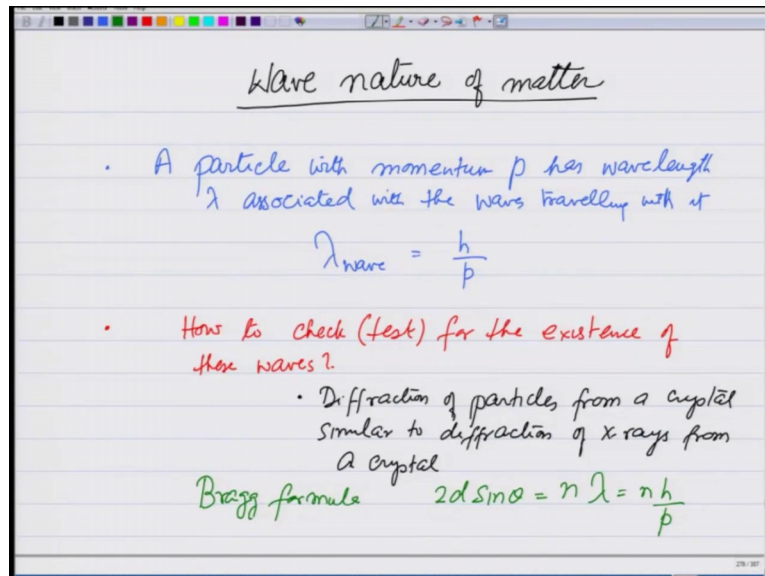 Wave nature of matter
· A particle with momentum p has wavelength
λ associated with the waves travelling with it
λ wave = h/p
· How to check (test) for the existence of
these waves?
· Diffraction of particles from a crystal
similar to diffraction of x-rays from
a crystal
Bragg formula 2d sinθ = n λ = n h/p
278 / 307